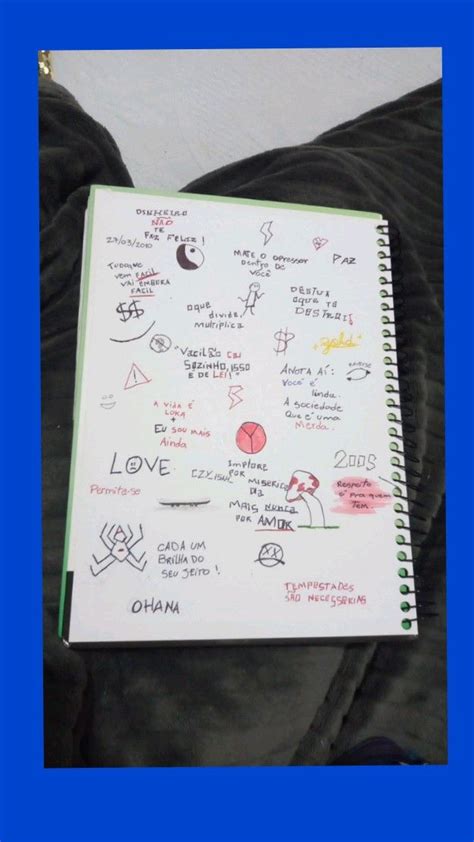 DINHEIRO
NÃO
TE
FAZ FELIZ!
MATE O OPRESSOR
DENTRO DE
VOCÊ
PAZ
TUDO QUE
VEM FACIL
VAI EMBORA
FACIL
$$
O QUE
divide,
multiplica
DESTRUA
O QUE TE
DESTROI
$
gold
"Vacilão cai
Sozinho, isso
é de LEI!"
ANOTA AÍ:
Você é
linda.
A sociedade
Que é uma
Merda.
A VIDA É
LOKA
+
EU SOU MAIS
Ainda
LOVE
Implore
por
MISERICÓR
DIA
MAIS NUNCA
POR AMOR
Permita-se
Respeito
é pra quem
Tem.
CADA UM
BRILHA DO
SEU JEITO!
XX
TEMPESTADES
SÃO NECESSÁRIAS
OHANA